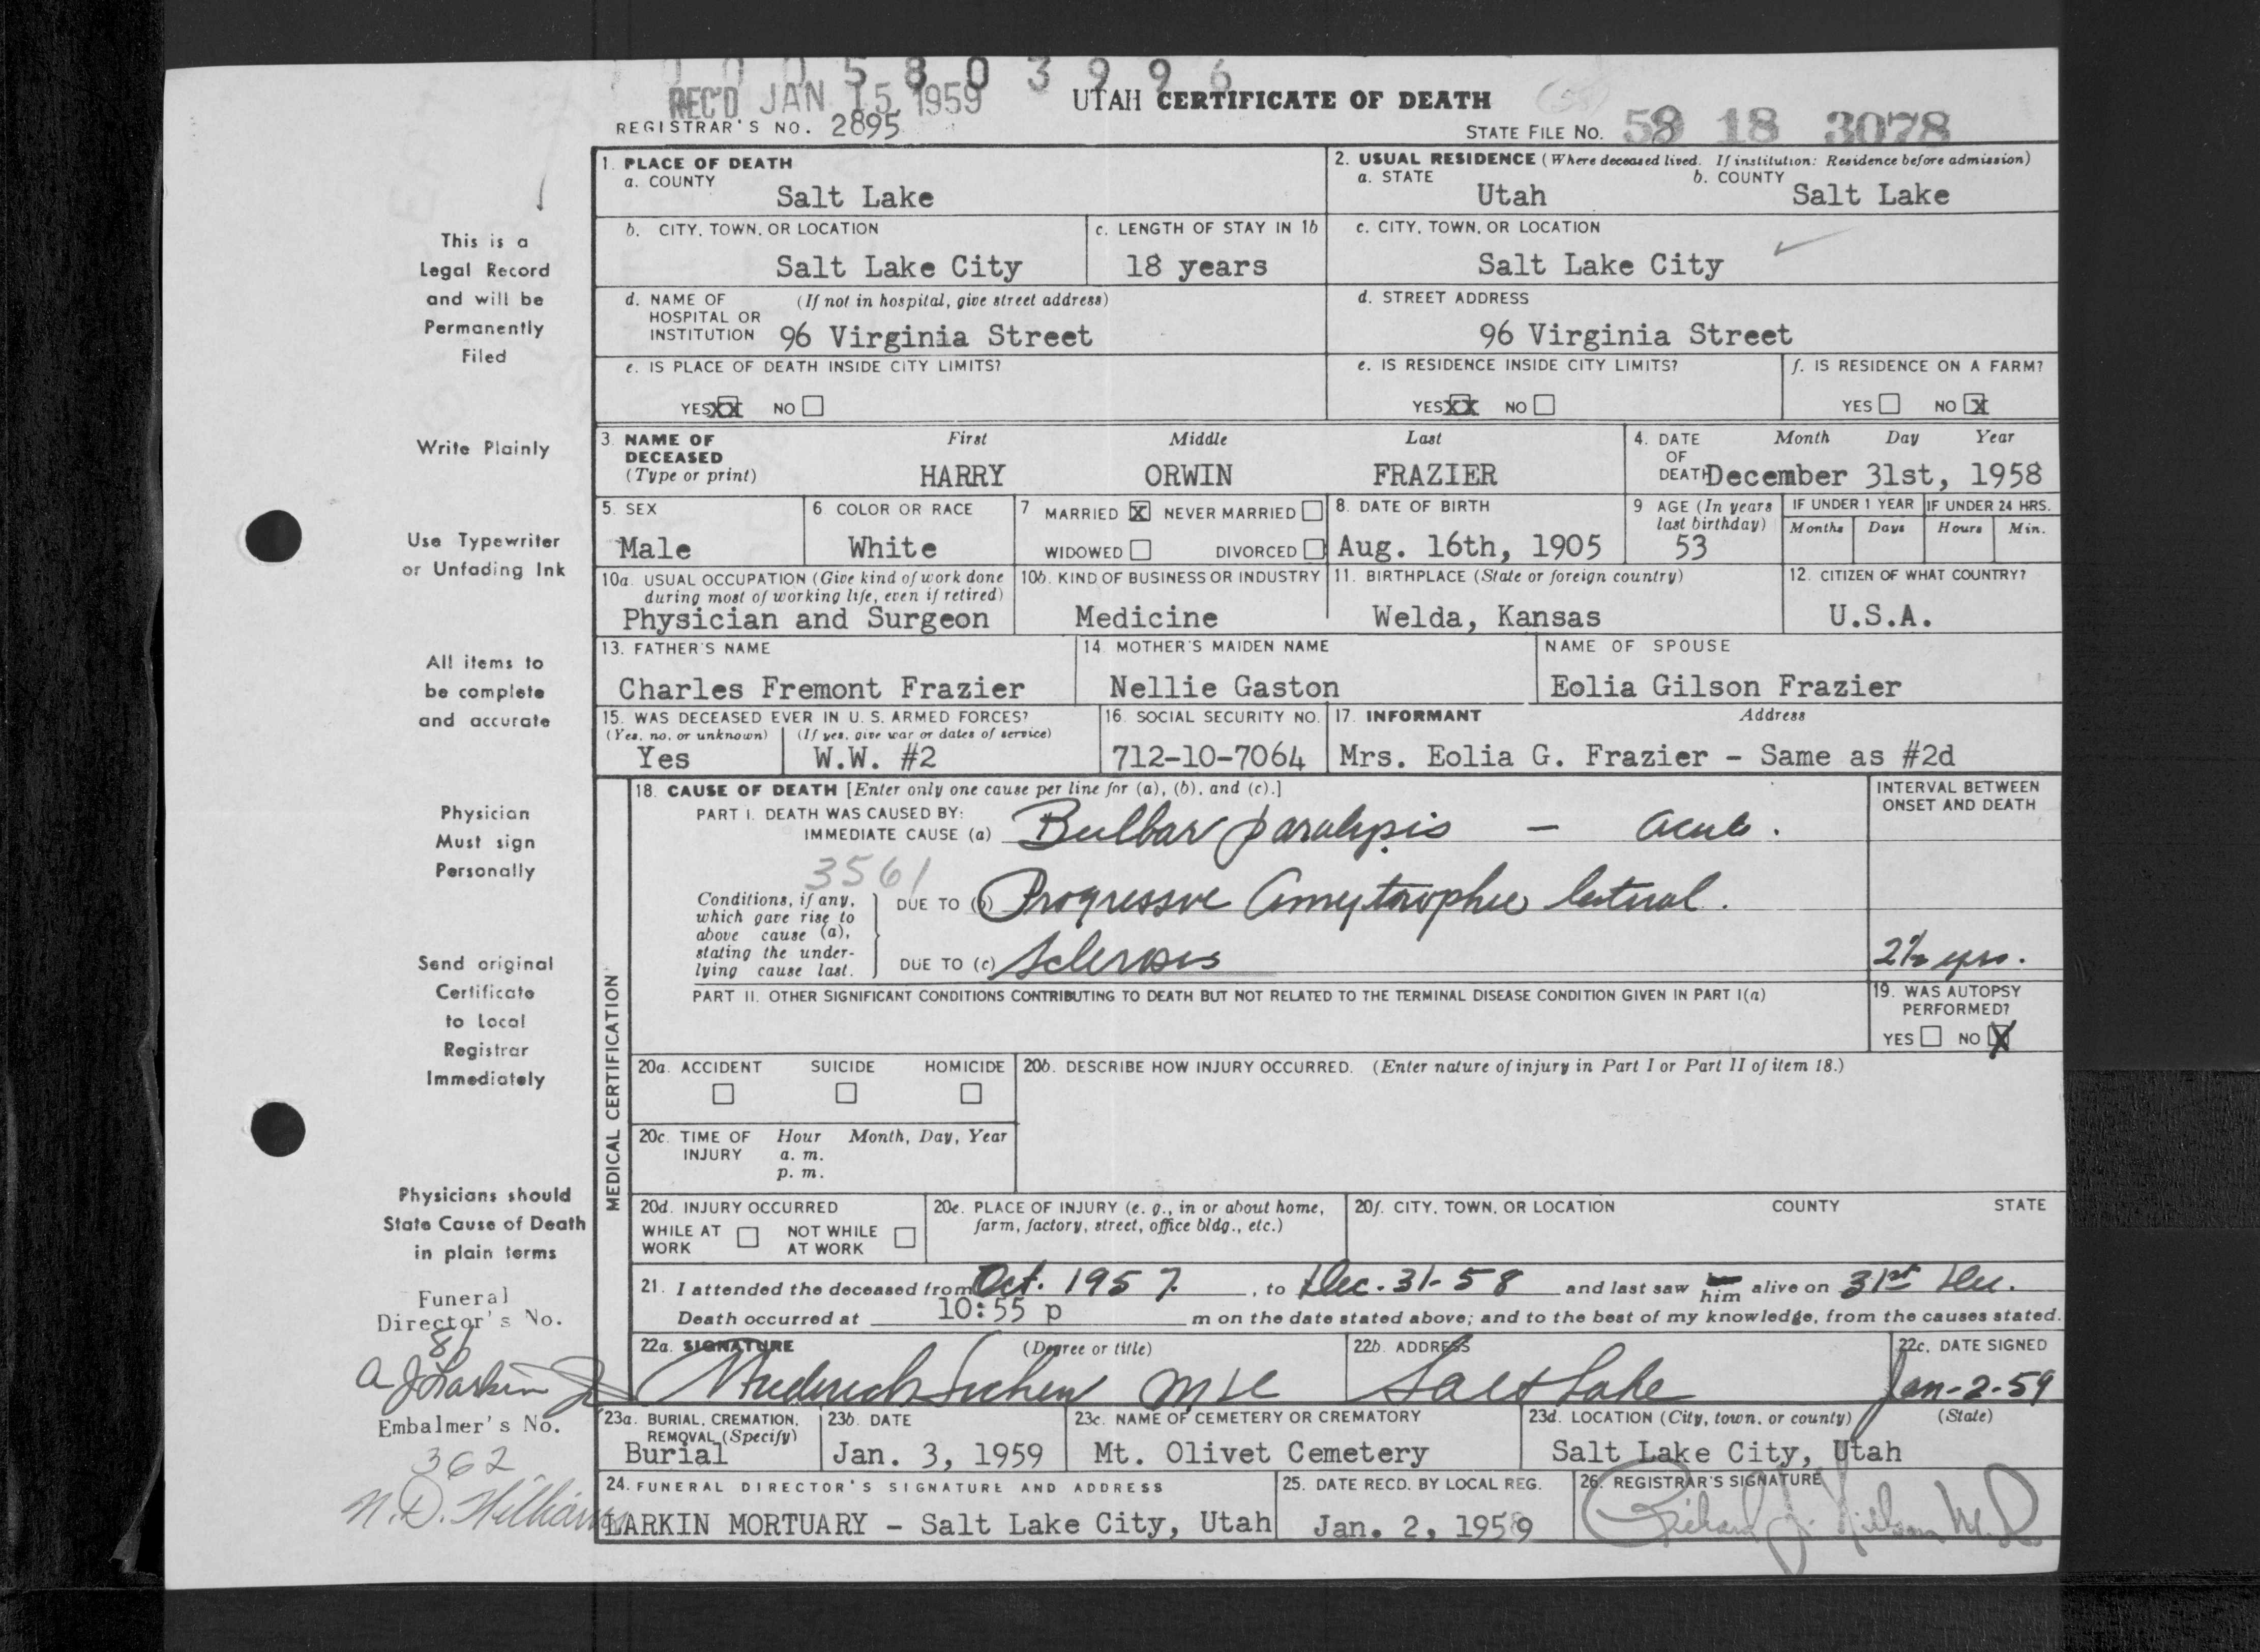 1 0 0 5 8 0 3 9 9 6
REC'D JAN 15 1959
UTAH CERTIFICATE OF DEATH
REGISTRAR'S NO. 2895
STATE FILE NO. 58 18 3078
This is a
Legal Record
and will be
Permanently
Filed
Write Plainly
Use Typewriter
or Unfading Ink
All items to
be complete
and accurate
Physician
Must sign
Personally
Send original
Certificate
to Local
Registrar
Immediately
Physicians should
State Cause of Death
in plain terms
Funeral
Director's No.
81
A J Larkin Jr
Embalmer's No.
362
N. D. Williams
1. PLACE OF DEATH
a. COUNTY
Salt Lake
2. USUAL RESIDENCE (Where deceased lived. If institution: Residence before admission)
a. STATE b. COUNTY
Utah Salt Lake
b. CITY, TOWN, OR LOCATION
Salt Lake City
c. LENGTH OF STAY IN 1b
18 years
c. CITY, TOWN, OR LOCATION
Salt Lake City
d. NAME OF (If not in hospital, give street address)
HOSPITAL OR
INSTITUTION 96 Virginia Street
d. STREET ADDRESS
96 Virginia Street
e. IS PLACE OF DEATH INSIDE CITY LIMITS?
YES XX NO
e. IS RESIDENCE INSIDE CITY LIMITS?
YES XX NO
f. IS RESIDENCE ON A FARM?
YES NO X
3. NAME OF First Middle Last
DECEASED
(Type or print) HARRY ORWIN FRAZIER
4. DATE Month Day Year
OF
DEATH December 31st, 1958
5. SEX
Male
6. COLOR OR RACE
White
7 MARRIED X NEVER MARRIED
WIDOWED DIVORCED
8. DATE OF BIRTH
Aug. 16th, 1905
9 AGE (In years
last birthday)
53
IF UNDER 1 YEAR IF UNDER 24 HRS.
Months Days Hours Min.
10a. USUAL OCCUPATION (Give kind of work done
during most of working life, even if retired)
Physician and Surgeon
10b. KIND OF BUSINESS OR INDUSTRY
Medicine
11. BIRTHPLACE (State or foreign country)
Welda, Kansas
12. CITIZEN OF WHAT COUNTRY?
U.S.A.
13. FATHER'S NAME
Charles Fremont Frazier
14. MOTHER'S MAIDEN NAME
Nellie Gaston
NAME OF SPOUSE
Eolia Gilson Frazier
15. WAS DECEASED EVER IN U. S. ARMED FORCES?
(Yes, no, or unknown) (If yes, give war or dates of service)
Yes W.W. #2
16. SOCIAL SECURITY NO.
712-10-7064
17. INFORMANT Address
Mrs. Eolia G. Frazier - Same as #2d
MEDICAL CERTIFICATION
18. CAUSE OF DEATH [Enter only one cause per line for (a), (b), and (c).]
INTERVAL BETWEEN
ONSET AND DEATH
PART I. DEATH WAS CAUSED BY:
IMMEDIATE CAUSE (a) Bulbar paralysis - acute.
3561
Conditions, if any,
which gave rise to
above cause (a),
stating the under-
lying cause last.
DUE TO (b) Progressive Amytrophic lateral.
DUE TO (c) Sclerosis
2½ yrs.
PART II. OTHER SIGNIFICANT CONDITIONS CONTRIBUTING TO DEATH BUT NOT RELATED TO THE TERMINAL DISEASE CONDITION GIVEN IN PART I(a)
19. WAS AUTOPSY
PERFORMED?
YES NO X
20a. ACCIDENT SUICIDE HOMICIDE
20b. DESCRIBE HOW INJURY OCCURRED. (Enter nature of injury in Part I or Part II of item 18.)
20c. TIME OF Hour Month, Day, Year
INJURY a. m.
p. m.
20d. INJURY OCCURRED
WHILE AT NOT WHILE
WORK AT WORK
20e. PLACE OF INJURY (e. g., in or about home,
farm, factory, street, office bldg., etc.)
20f. CITY, TOWN, OR LOCATION COUNTY STATE
21. I attended the deceased from Oct. 1957. , to Dec. 31-58 and last saw her him alive on 31st Dec.
Death occurred at 10:55 p m on the date stated above; and to the best of my knowledge, from the causes stated.
22a. SIGNATURE (Degree or title)
22b. ADDRESS
Salt Lake
22c. DATE SIGNED
Jan-2-59
23a. BURIAL, CREMATION,
REMOVAL (Specify)
Burial
23b. DATE
Jan. 3, 1959
23c. NAME OF CEMETERY OR CREMATORY
Mt. Olivet Cemetery
23d. LOCATION (City, town, or county) (State)
Salt Lake City, Utah
24. FUNERAL DIRECTOR'S SIGNATURE AND ADDRESS
LARKIN MORTUARY - Salt Lake City, Utah
25. DATE RECD. BY LOCAL REG.
Jan. 2, 1959
26. REGISTRAR'S SIGNATURE
Richard J.